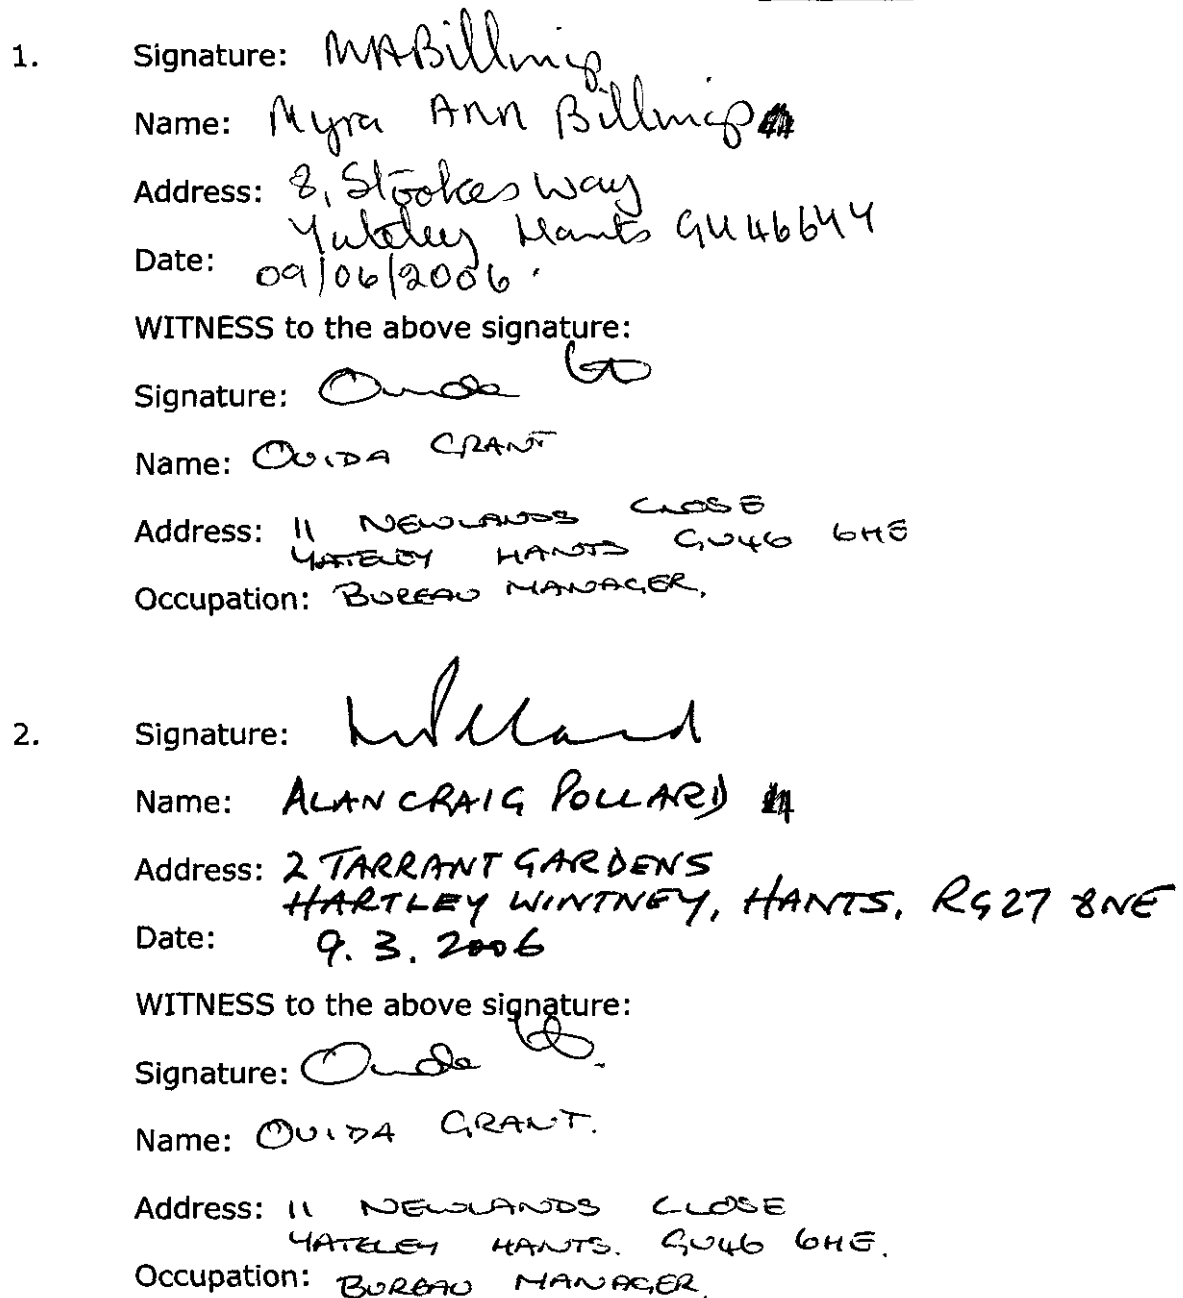 1. Signature: MABilling
Name: Myra Ann Billing
Address: 8, Stookes Way
Yateley Hants GU46 6YY
Date: 09/06/2006.
WITNESS to the above signature:
Signature: Ouida
Name: OUIDA GRANT
Address: 11 NEWLANDS CLOSE
YATELEY HANTS GU46 6HE
Occupation: BUREAU MANAGER.
2. Signature: Pollard
Name: ALAN CRAIG POLLARD
Address: 2 TARRANT GARDENS
HARTLEY WINTNEY, HANTS, RG27 8NE
Date: 9.3.2006
WITNESS to the above signature:
Signature: Ouida
Name: OUIDA GRANT.
Address: 11 NEWLANDS CLOSE
YATELEY HANTS. GU46 6HE.
Occupation: BUREAU MANAGER.